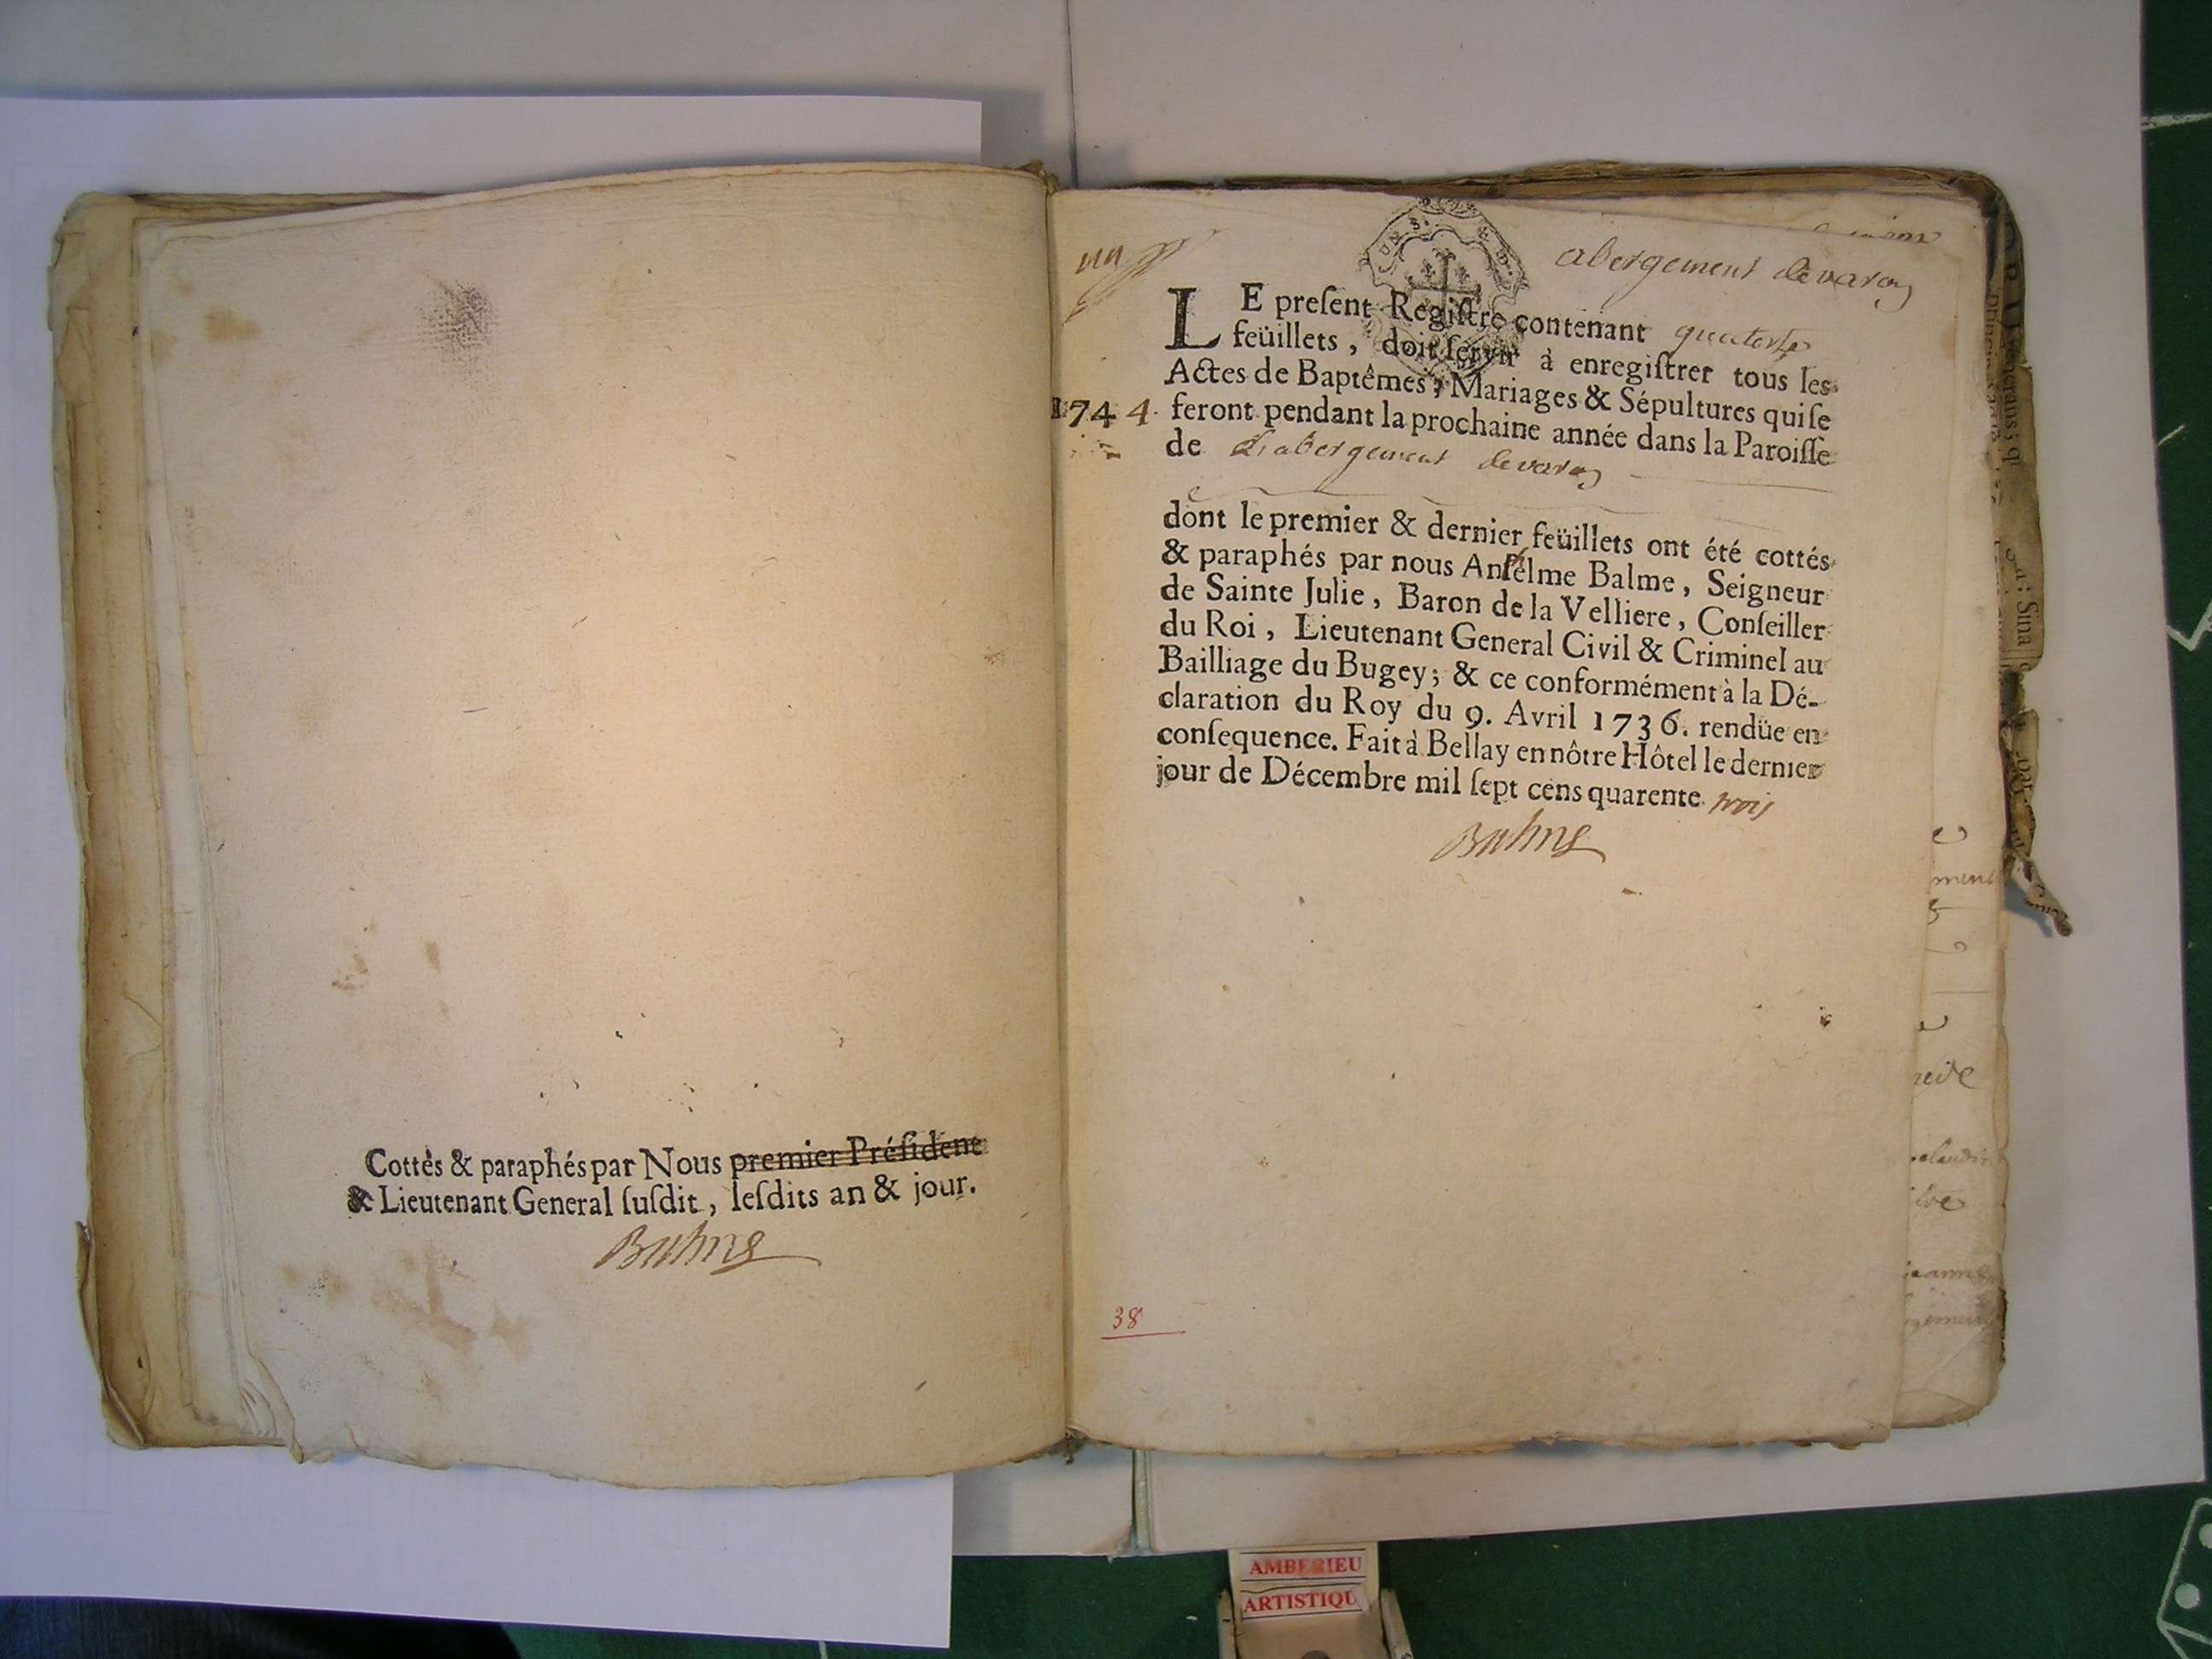 Cottés & paraphés par Nous premier Préſident
& Lieutenant General ſuſdit, leſdits an & jour.
Balme
un
abergement de varey
LE preſent Regiſtre contenant quatorze
feüillets, doit ſervir à enregiſtrer tous les
Actes de Baptêmes, Mariages & Sépultures qui ſe
1744. feront pendant la prochaine année dans la Paroiſſe
de L'abergement de varey
dont le premier & dernier feüillets ont été cottés
& paraphés par nous Anſelme Balme, Seigneur
de Sainte Julie, Baron de la Velliere, Conſeiller
du Roi, Lieutenant General Civil & Criminel au
Bailliage du Bugey; & ce conformément à la Dé-
claration du Roy du 9. Avril 1736. rendüe en
conſequence. Fait à Bellay en nôtre Hôtel le dernier
jour de Décembre mil ſept cens quarente trois
Balme
38
AMBERIEU
ARTISTIQU